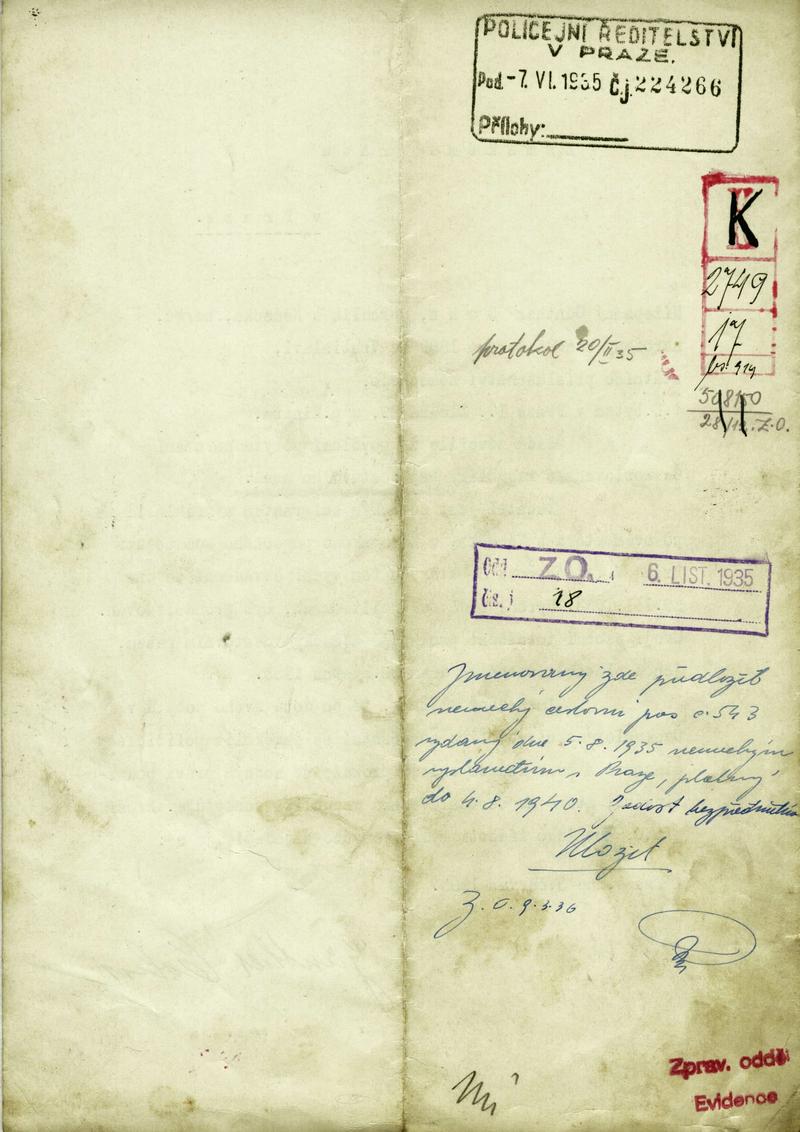 POLICEJNÍ ŘEDITELSTVÍ
V PRAZE.
Pod. -7. VI. 1935 Č.j. 224266
Přílohy:
K
2749
17
protokol 20/II 35
508/50
28/12. Z.O.
Odd. Z O. 6. LIST. 1935
čís. j. 18
Jmenovaný zde předložil
německý cestovní pas č. 543
vydaný dne 5. 8. 1935 německým
vyslanectvím v Praze, platný
do 4. 8. 1940. Žádost bezpředmětná
Uložit
Z. O. 9. 3. 36
Zprav. odděl
Evidence